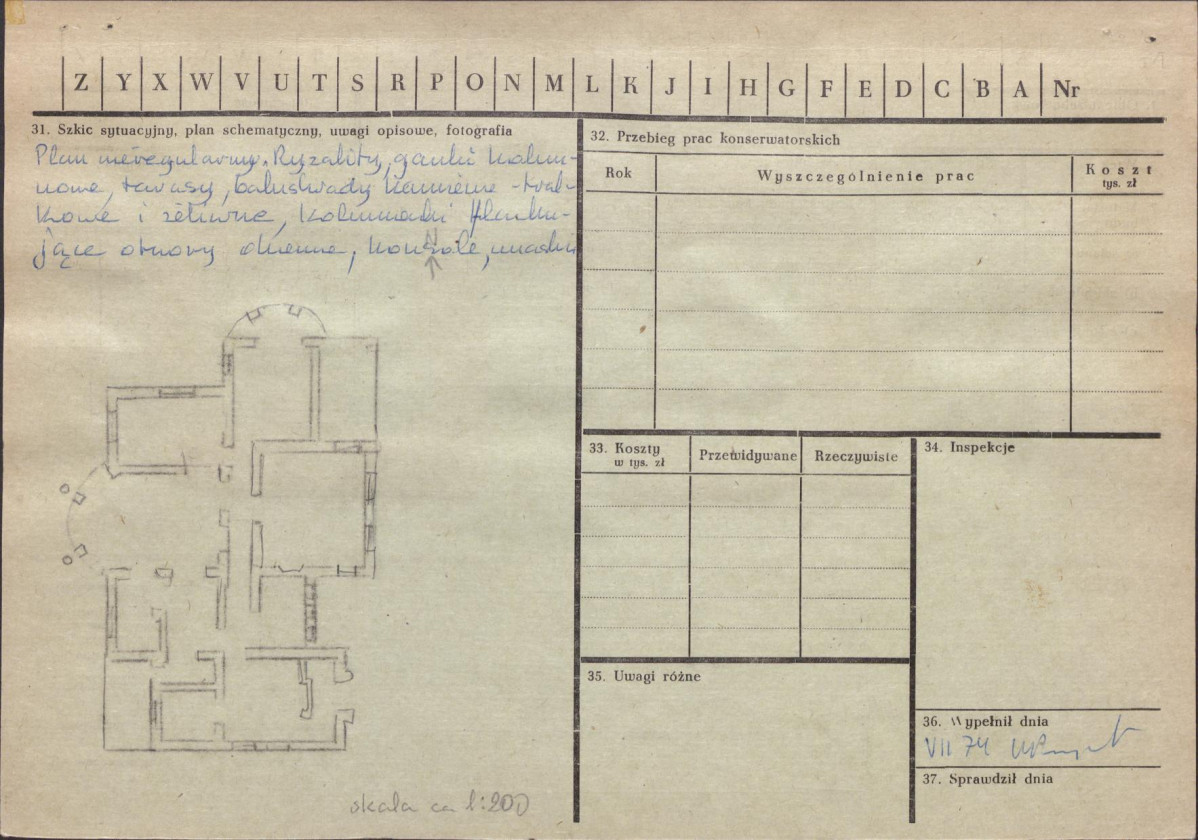 Z Y X W V U T S R P O N M L K J I H G F E D C B A Nr
31. Szkic sytuacyjny, plan schematyczny, uwagi opisowe, fotografia
Plan nieregularny. Ryzality, ganki kolum-
nowe, tarasy, balustrady kamienne - tral-
kowe i żeliwne, kolumienki flanku-
jące otwory okienne, konsole, maski
skala ca 1:200
32. Przebieg prac konserwatorskich
Rok
Wyszczególnienie prac
Koszt
tys. zł
33. Koszty
w tys. zł
Przewidywane
Rzeczywiste
34. Inspekcje
35. Uwagi różne
36. Wypełnił dnia
VII 74
37. Sprawdził dnia